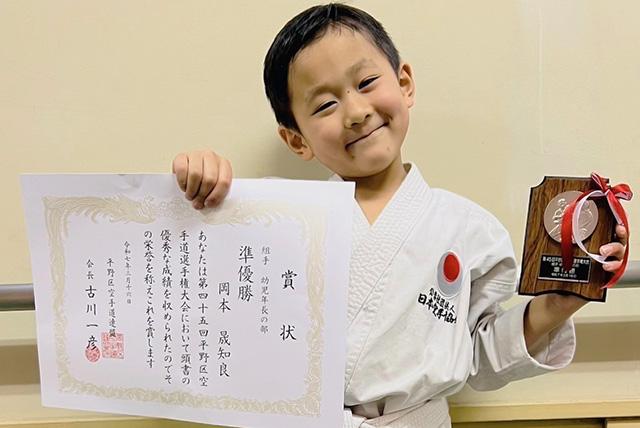 賞状
組手 幼児年長の部
準優勝
岡本 晟知良
あなたは第四十五回平野区空
手道選手権大会において頭書の
優秀な成績を収められたのでそ
の栄誉を称えこれを賞します
令和七年三月十六日
平野区空手道連盟
会長 古川一彦
日本空手協会